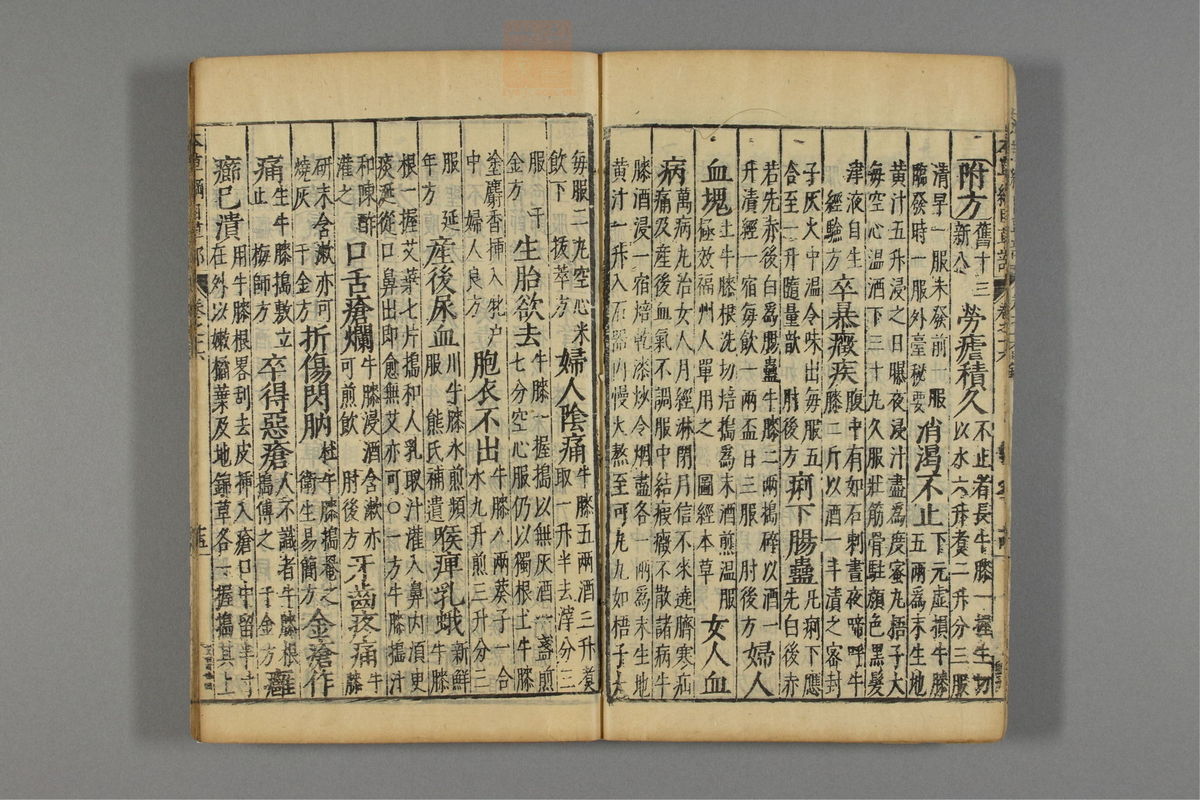 附方舊十三新八 勞瘧積久不止者長牛膝一握生切以水六升煑二升分三服
清早一服未發前一服臨發時一服外臺秘要 消渴不止下元虛損牛膝五兩爲末生地
黄汁五升浸之日曝夜浸汁盡爲度蜜丸梧子大每空心温酒下三十丸久服壯筋骨駐顔色黑髮
津液自生經驗方 卒暴癥疾腹中有如石刺晝夜啼呼牛膝二斤以酒一斗漬之密封
于灰火中温令味出每服五合至一升隨量飲 肘後方 痢下腸蠱凡痢下應先白後赤
若先赤後白爲腸蠱牛膝二兩搗碎以酒一升漬經一宿每飲一兩盃日三服 肘後方 婦人
血塊土牛膝根洗切焙搗爲末酒煎温服極效福州人單用之 圖經本草 女人血
病萬病丸治女人月經淋閉月信不來遶臍寒疝痛及産後血氣不調服中結瘕癥不散諸病牛
膝酒浸一宿焙乾漆炒令烟盡各一兩爲末生地黄汁一升入石器内慢火熬至可丸丸如梧子大
每服二丸空心米飲下 拔萃方 婦人陰痛牛膝五兩酒三升煑取一升半去滓分三
服 千金方 生胎欲去牛膝一握搗以無灰酒一盞煎七分空心服仍以獨根土牛膝
塗麝香揷入牝户中 婦人良方 胞衣不出牛膝八兩葵子一合水九升煎三升分三
服 延年方 産後尿血川牛膝水煎頻服 熊氏補遺 喉痺乳蛾新鮮牛膝
根一握艾葉七片搗和人乳取汁灌入鼻内須臾痰涎從口鼻出即愈無艾亦可〇一方牛膝搗汁
和陳酢灌之 口舌瘡爛牛膝浸酒含漱亦可煎飲 肘後方 牙齒疼痛牛膝
研末含漱亦可燒灰 千金方 折傷閃肭杜牛膝搗罨之衛生易簡方 金瘡作
痛生牛膝搗敷立止 梅師方 卒得惡瘡人不識者牛膝根搗傅之 千金方 癰
癤已潰用牛膝根畧刮去皮揷入瘡口中留半寸在外以嫩橘葉及地錦草各一握搗其上